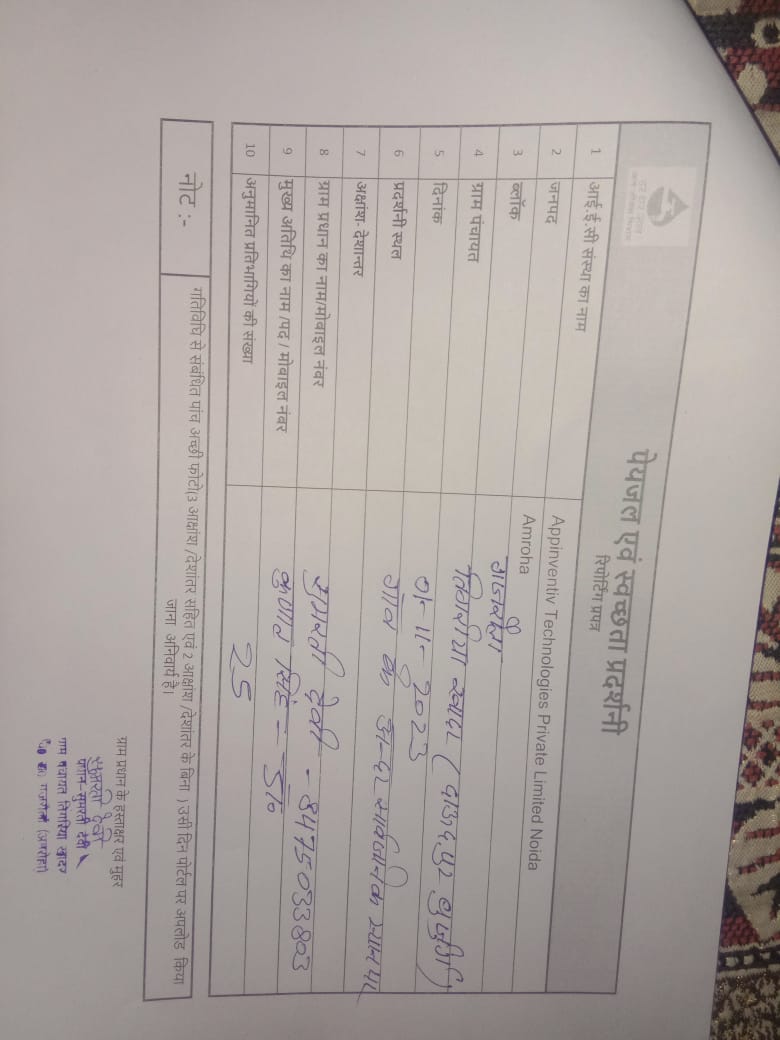 पेयजल एवं स्वच्छता प्रदर्शनी
रिपोर्टिंग प्रपत्र
1 आई.ई.सी संस्था का नाम Appinventiv Technologies Private Limited Noida
2 जनपद Amroha
3 ब्लॉक गजरौला
4 ग्राम पंचायत तिगरिया खादर
5 दिनांक 01-11-2023
6 प्रदर्शनी स्थल गाँव के अन्दर सार्वजनिक स्थान पर
7 अक्षांश- देशान्तर
8 ग्राम प्रधान का नाम/मोबाइल नंबर सुमरती देवी - 8475033803
9 मुख्य अतिथि का नाम /पद / मोबाइल नंबर सिंह -
10 अनुमानित प्रतिभागियों की संख्या 25
नोट :- गतिविधि से संबंधित पांच अच्छी फोटो(3 आक्षांश /देशांतर सहित एवं 2 आक्षांश /देशांतर के बिना ) उसी दिन पोर्टल पर अपलोड किया
जाना अनिवार्य है।
ग्राम प्रधान के हस्ताक्षर एवं मुहर
सुमरती देवी
प्रधान-सुमरती देवी
ग्राम पंचायत तिगरिया खादर
गजरौला (अमरोहा)